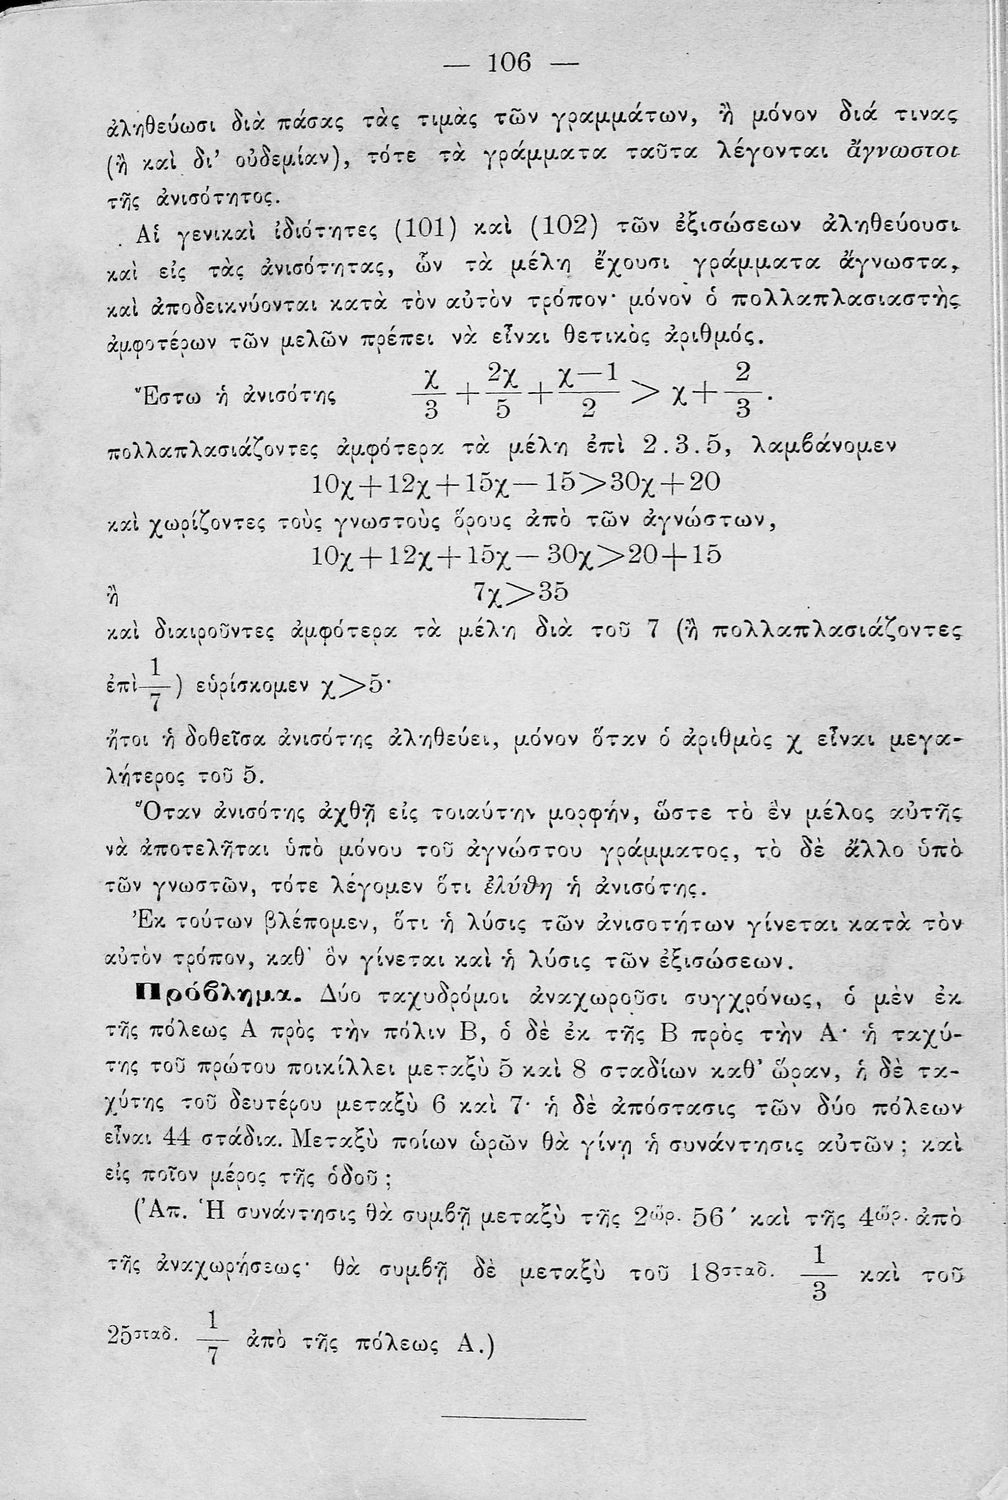 — 106 —
ἀληθεύωσι διὰ πάσας τὰς τιμὰς τῶν γραμμάτων, ἢ μόνον διά τινας
(ἢ καὶ δι’ οὐδεμίαν), τότε τὰ γράμματα ταῦτα λέγονται ἄγνωστοι
τῆς ἀνισότητος.
Αἱ γενικαὶ ἰδιότητες (101) καὶ (102) τῶν ἐξισώσεων ἀληθεύουσι
καὶ εἰς τὰς ἀνισότητας, ὧν τὰ μέλη ἔχουσι γράμματα ἄγνωστα,
καὶ ἀποδεικνύονται κατὰ τὸν αὐτὸν τρόπον· μόνον ὁ πολλαπλασιαστὴς
ἀμφοτέρων τῶν μελῶν πρέπει νὰ εἶναι θετικὸς ἀριθμός.
Ἔστω ἡ ἀνισότης χ/3 + 2χ/5 + χ—1/2 > χ + 2/3.
πολλαπλασιάζοντες ἀμφότερα τὰ μέλη ἐπὶ 2.3.5, λαμβάνομεν
10χ+12χ+15χ—15>30χ+20
καὶ χωρίζοντες τοὺς γνωστοὺς ὅρους ἀπὸ τῶν ἀγνώστων,
10χ+12χ+15χ—30χ>20+15
ἢ 7χ>35
καὶ διαιροῦντες ἀμφότερα τὰ μέλη διὰ τοῦ 7 (ἢ πολλαπλασιάζοντες
ἐπὶ 1/7) εὑρίσκομεν χ>5·
ἤτοι ἡ δοθεῖσα ἀνισότης ἀληθεύει, μόνον ὅταν ὁ ἀριθμὸς χ εἶναι μεγα-
λήτερος τοῦ 5.
Ὅταν ἀνισότης ἀχθῇ εἰς τοιαύτην μορφήν, ὥστε τὸ ἓν μέλος αὐτῆς
νὰ ἀποτελῆται ὑπὸ μόνου τοῦ ἀγνώστου γράμματος, τὸ δὲ ἄλλο ὑπὸ
τῶν γνωστῶν, τότε λέγομεν ὅτι ἐλύθη ἡ ἀνισότης.
Ἐκ τούτων βλέπομεν, ὅτι ἡ λύσις τῶν ἀνισοτήτων γίνεται κατὰ τὸν
αὐτὸν τρόπον, καθ’ ὃν γίνεται καὶ ἡ λύσις τῶν ἐξισώσεων.
Πρόβλημα. Δύο ταχυδρόμοι ἀναχωροῦσι συγχρόνως, ὁ μὲν ἐκ
τῆς πόλεως Α πρὸς τὴν πόλιν Β, ὁ δὲ ἐκ τῆς Β πρὸς τὴν Α· ἡ ταχύ-
της τοῦ πρώτου ποικίλλει μεταξὺ 5 καὶ 8 σταδίων καθ’ ὥραν, ἡ δὲ τα-
χύτης τοῦ δευτέρου μεταξὺ 6 καὶ 7· ἡ δὲ ἀπόστασις τῶν δύο πόλεων
εἶναι 44 στάδια. Μεταξὺ ποίων ὡρῶν θὰ γίνῃ ἡ συνάντησις αὐτῶν; καὶ
εἰς ποῖον μέρος τῆς ὁδοῦ;
(Ἀπ. Ἡ συνάντησις θὰ συμβῇ μεταξὺ τῆς 2ὥρ. 56′ καὶ τῆς 4ὥρ. ἀπὸ
τῆς ἀναχωρήσεως· θὰ συμβῇ δὲ μεταξὺ τοῦ 18σταδ. 1/3 καὶ τοῦ
25σταδ. 1/7 ἀπὸ τῆς πόλεως Α.)